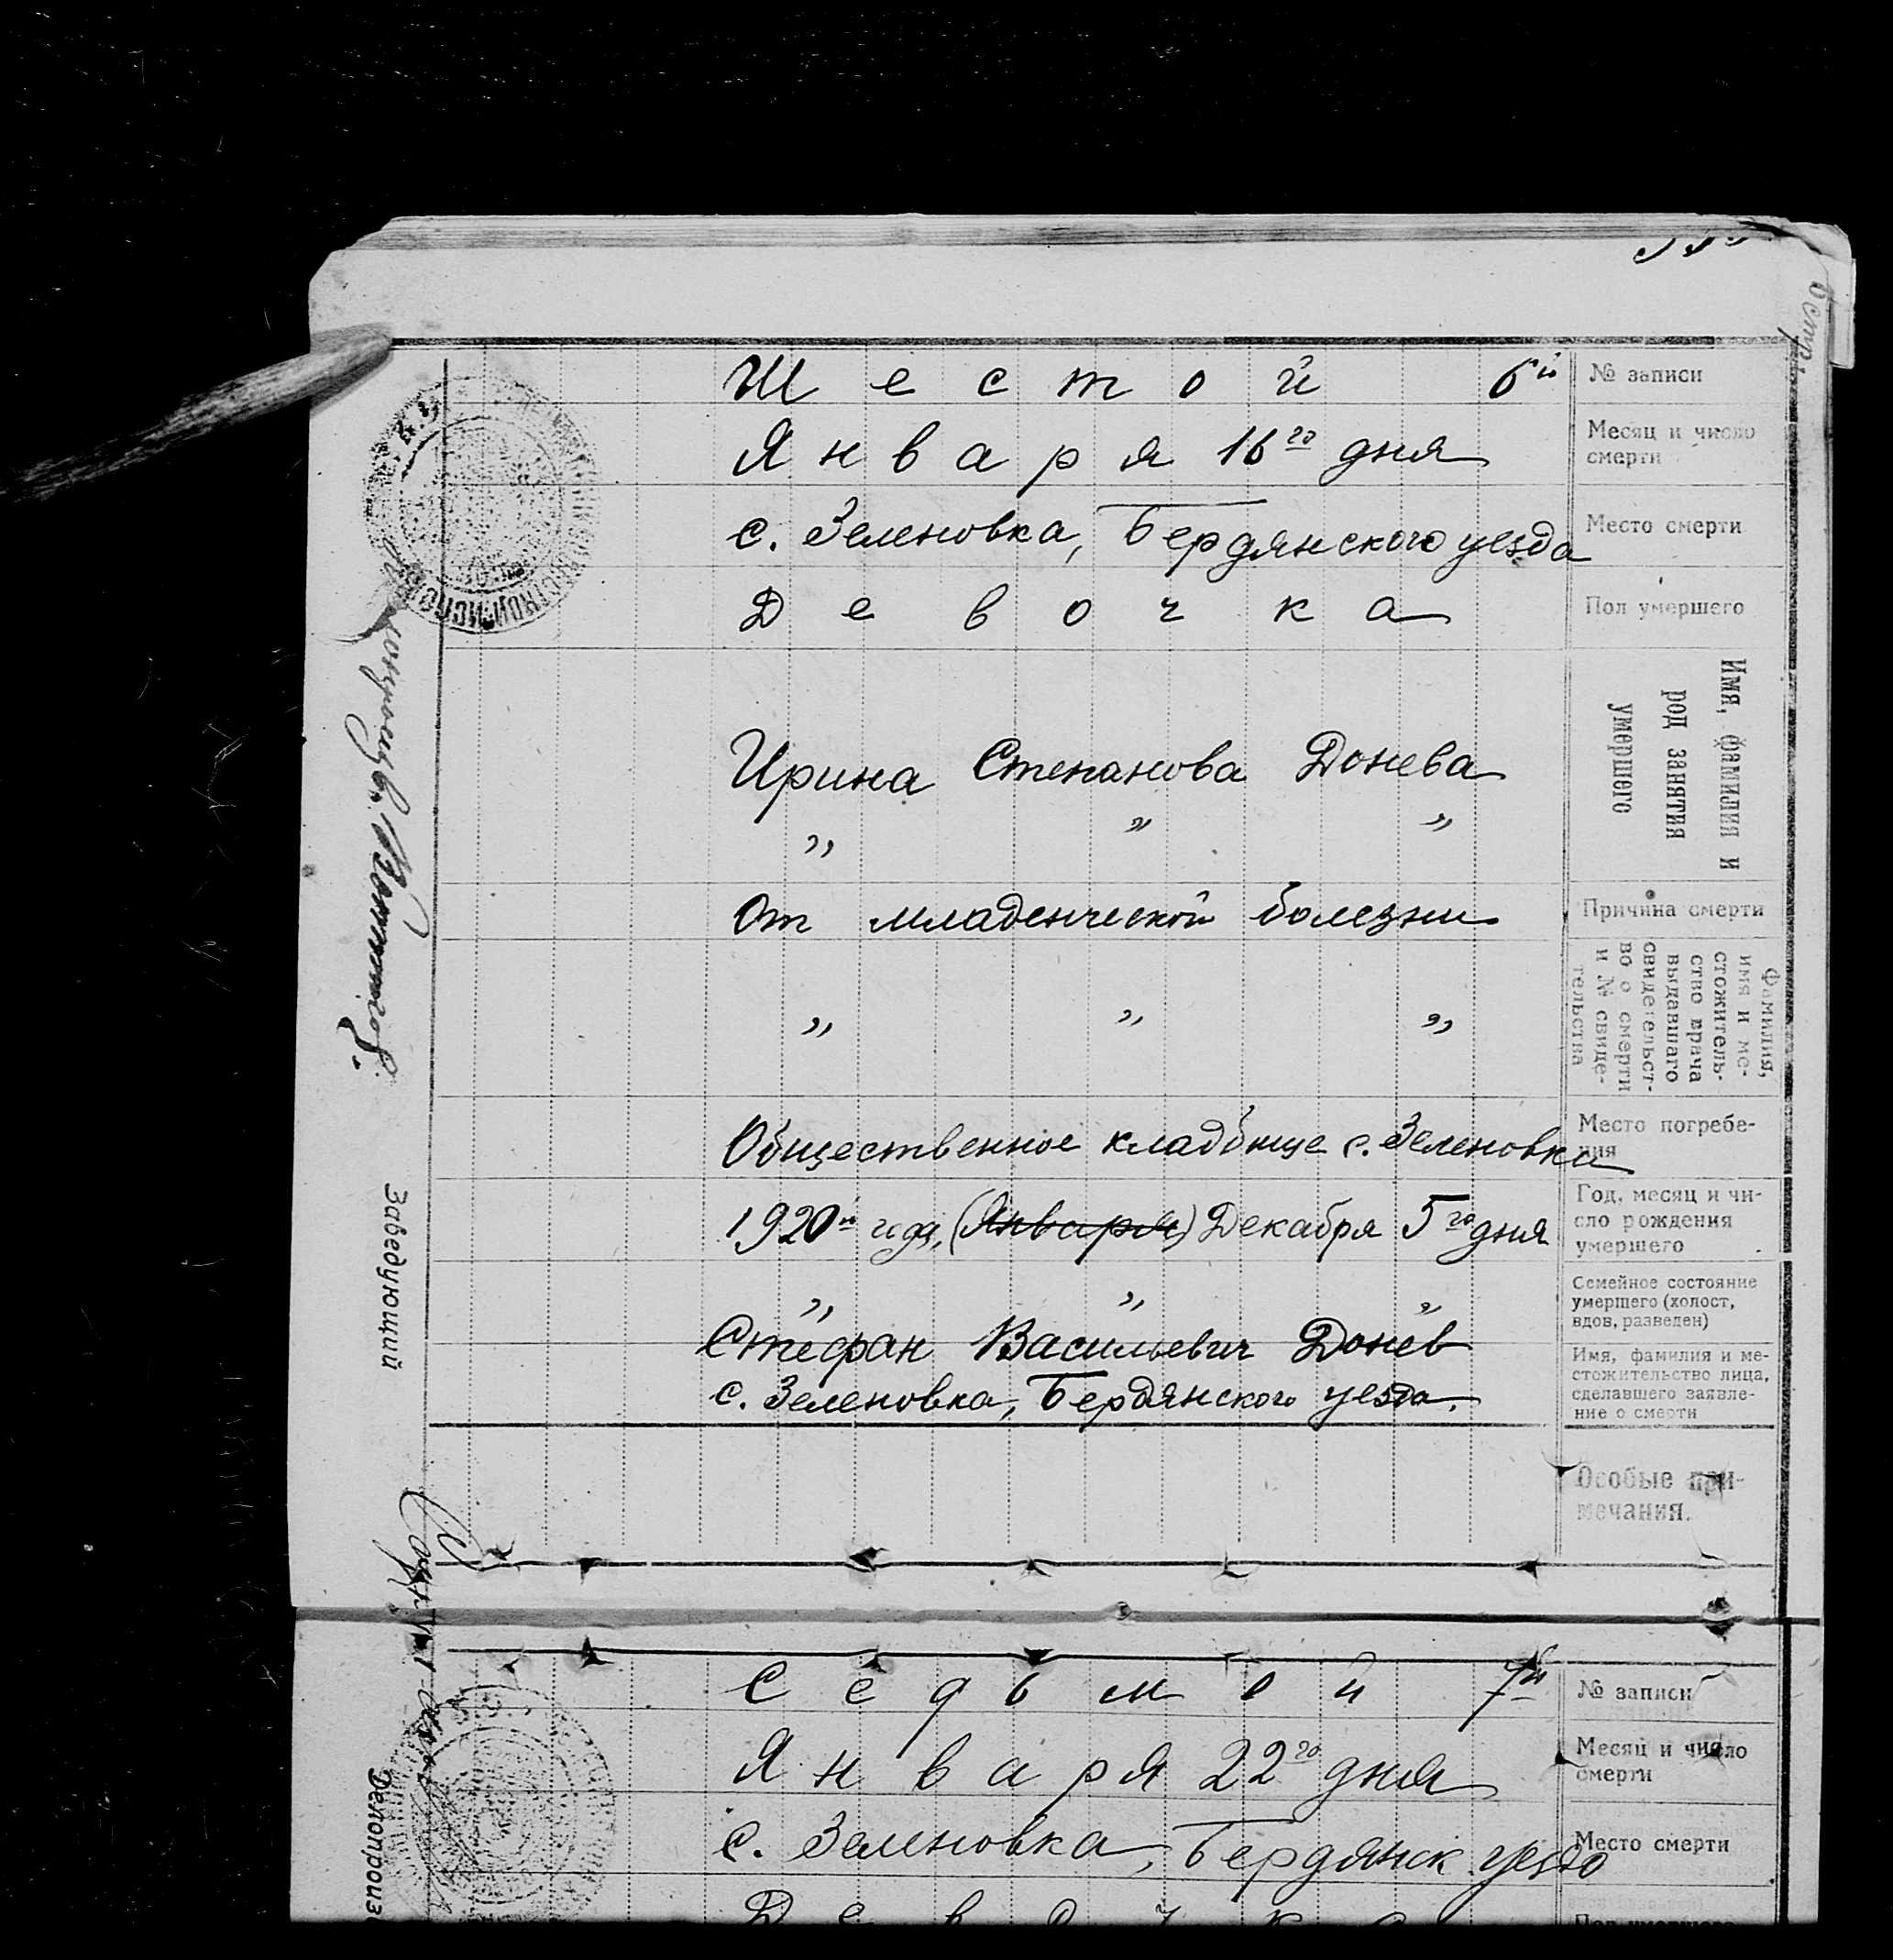 Шестой 6й
№ записи
Января 16го дня
Месяц и число
смерти
с. Зеленовка, Бердянского уезда
Место смерти
Девочка
Пол умершего
Ирина Степанова Донева
„ „ „
Имя, фамилия и
род занятия
умершего
От младенческой болезни
Причина смерти
„ „ „
Фамилия,
имя и ме-
стожитель-
ство врача
выдавшаго
свидетельст-
во о смерти
и № свиде-
тельства
Общественное кладбище с. Зеленовка
Место погребе-
ния
1920й года, (Января) Декабря 5го дня
Год, месяц и чи-
сло рождения
умершего
„ „ „
Семейное состояние
умершего (холост,
вдов, разведен)
Стефан Васильевич Донев
с. Зеленовка, Бердянского уезда.
Имя, фамилия и ме-
стожительство лица,
сделавшего заявле-
ние о смерти
Особые при-
мечания.
Заведующий
Седьмой 7й
№ записи
Января 22го дня
Месяц и число
смерти
с. Зеленовка, Бердянск. уезда
Место смерти
Девочка
Пол умершего
Делопроизв